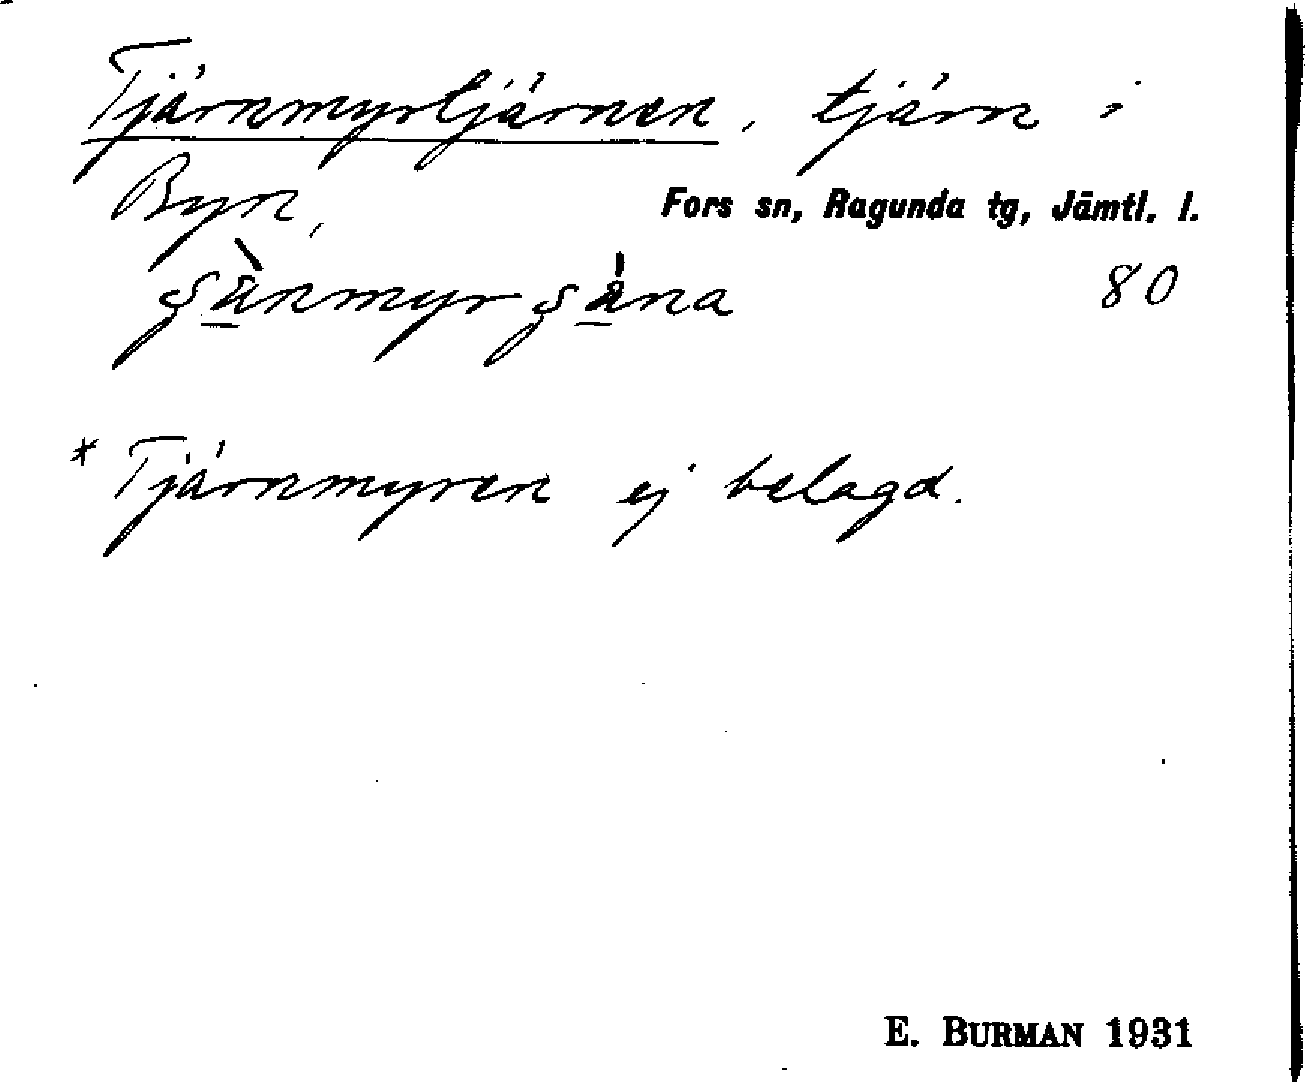 Tjärnmyrtjärnen, tjärn i
Byn,
Fors sn, Ragunda tg, Jämtl. l.
80
* Tjärnmyren ej belagd.
E. BURMAN 1931